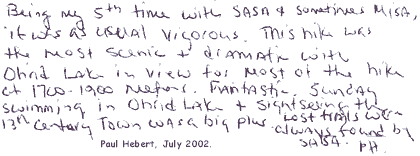 Being my 5th time with SASA & sometimes MISA,
it was as usual vigorous. This hike was
the most scenic & dramatic with
Ohrid Lake in view for most of the hike
at 1700-1900 meters. Funtastic. Sunday
swimming in Ohrid Lake & sightseeing the
13th century Town was a big plus. Lost trails were
always found by
SASA. PH
Paul Hebert, July 2002.